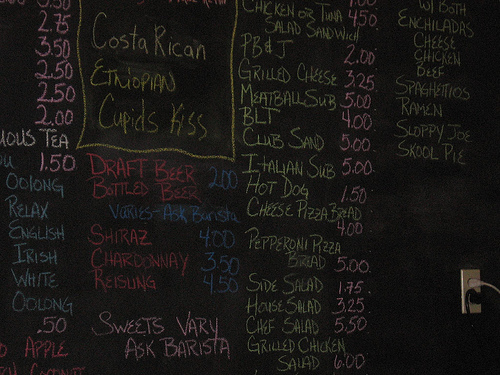 2.75
3.50
2.50
2.50
2.00
TEA
1.50
OOLONG
RELAX
ENGLISH
IRISH
WHITE
OOLONG
.50
APPLE
Costa Rican
ETHIOPIAN
Cupids Kiss
DRAFT BEER 2.00
BOTTLED BEER
VARIES-ASK BARISTA
SHIRAZ 4.00
CHARDONNAY 3.50
REISLING 4.50
SWEETS VARY
ASK BARISTA
CHICKEN OR TUNA 4.50
SALAD SANDWICH
PB & J 2.00
GRILLED CHEESE 3.25
MEATBALL SUB 5.00
BLT 4.00
CLUB SAND 5.00
ITALIAN SUB 5.00
HOT DOG 1.50
CHEESE PIZZA BREAD
4.00
PEPPERONI PIZZA
BREAD 5.00
SIDE SALAD 1.75
HOUSE SALAD 3.25
CHEF SALAD 5.50
GRILLED CHICKEN
SALAD 6.00
W/ BOTH
ENCHILADAS
CHEESE
CHICKEN
BEEF
SPAGHETTIOS
RAMEN
SLOPPY JOE
SKOOL PIE